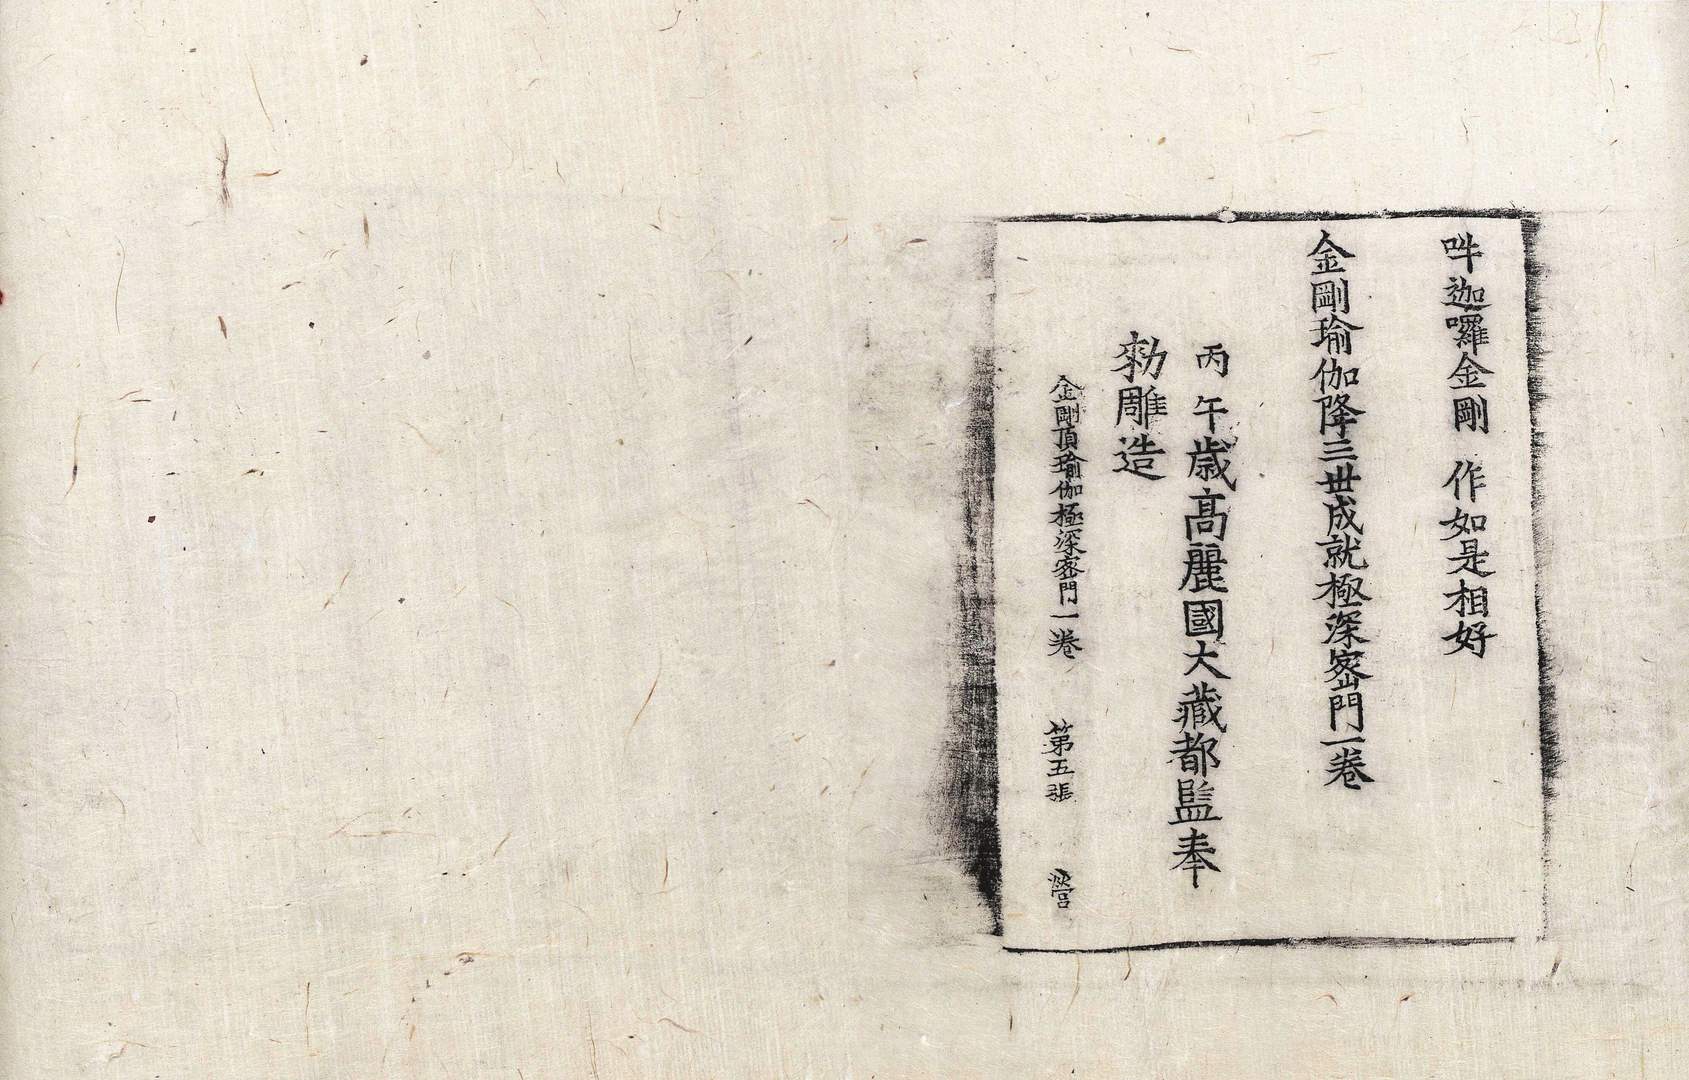 吽迦囉金剛 作如是相好
金剛瑜伽降三世成就極深密門一卷
丙午歲高麗國大藏都監奉
勑雕造
金剛頂瑜伽極深密門一卷 第五張 營